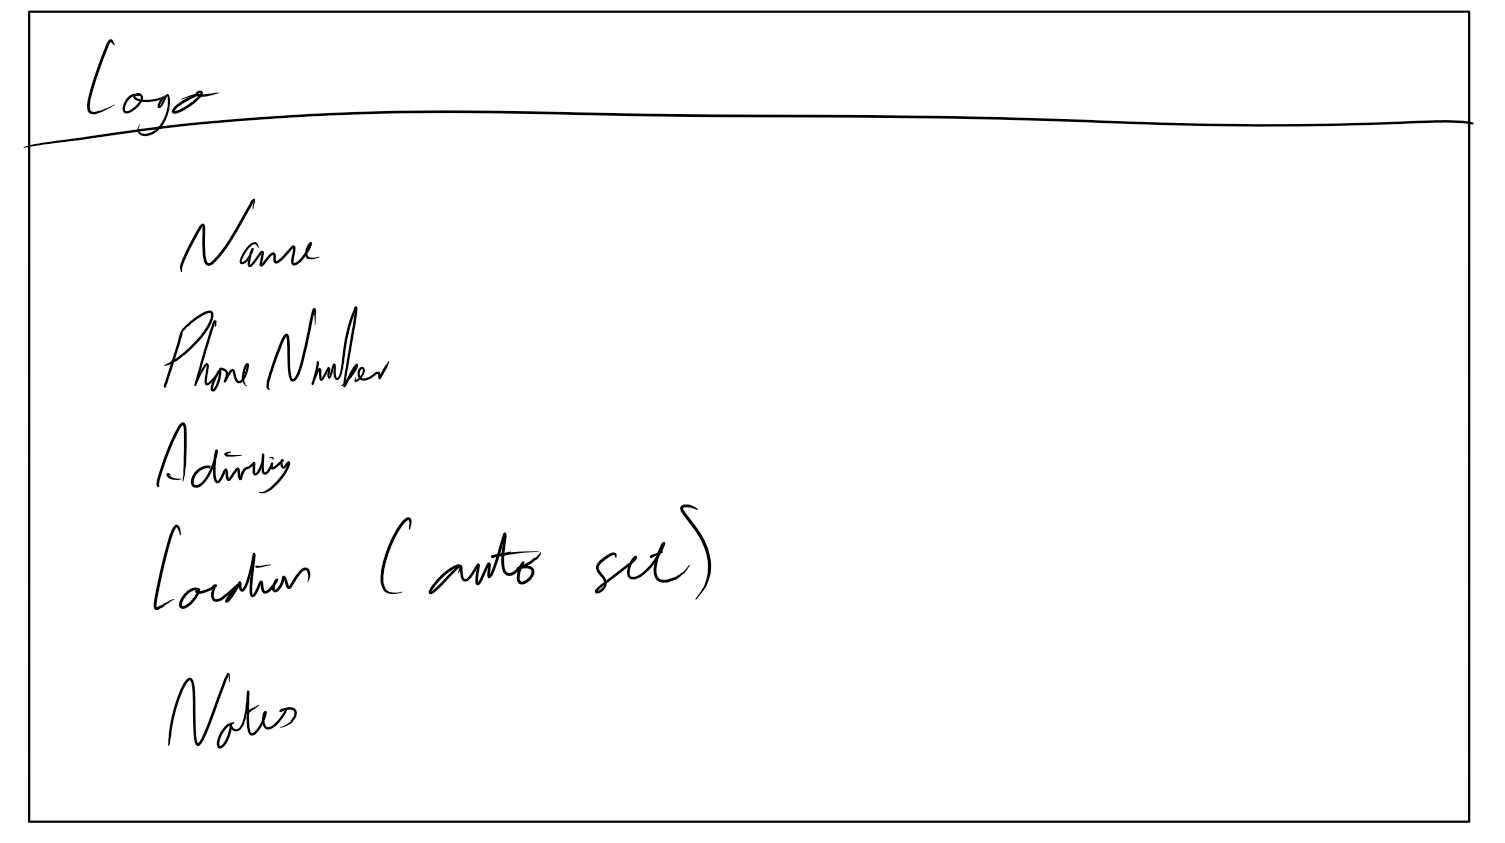 Logo
Name
Phone Number
Activity
Location (auto set)
Notes